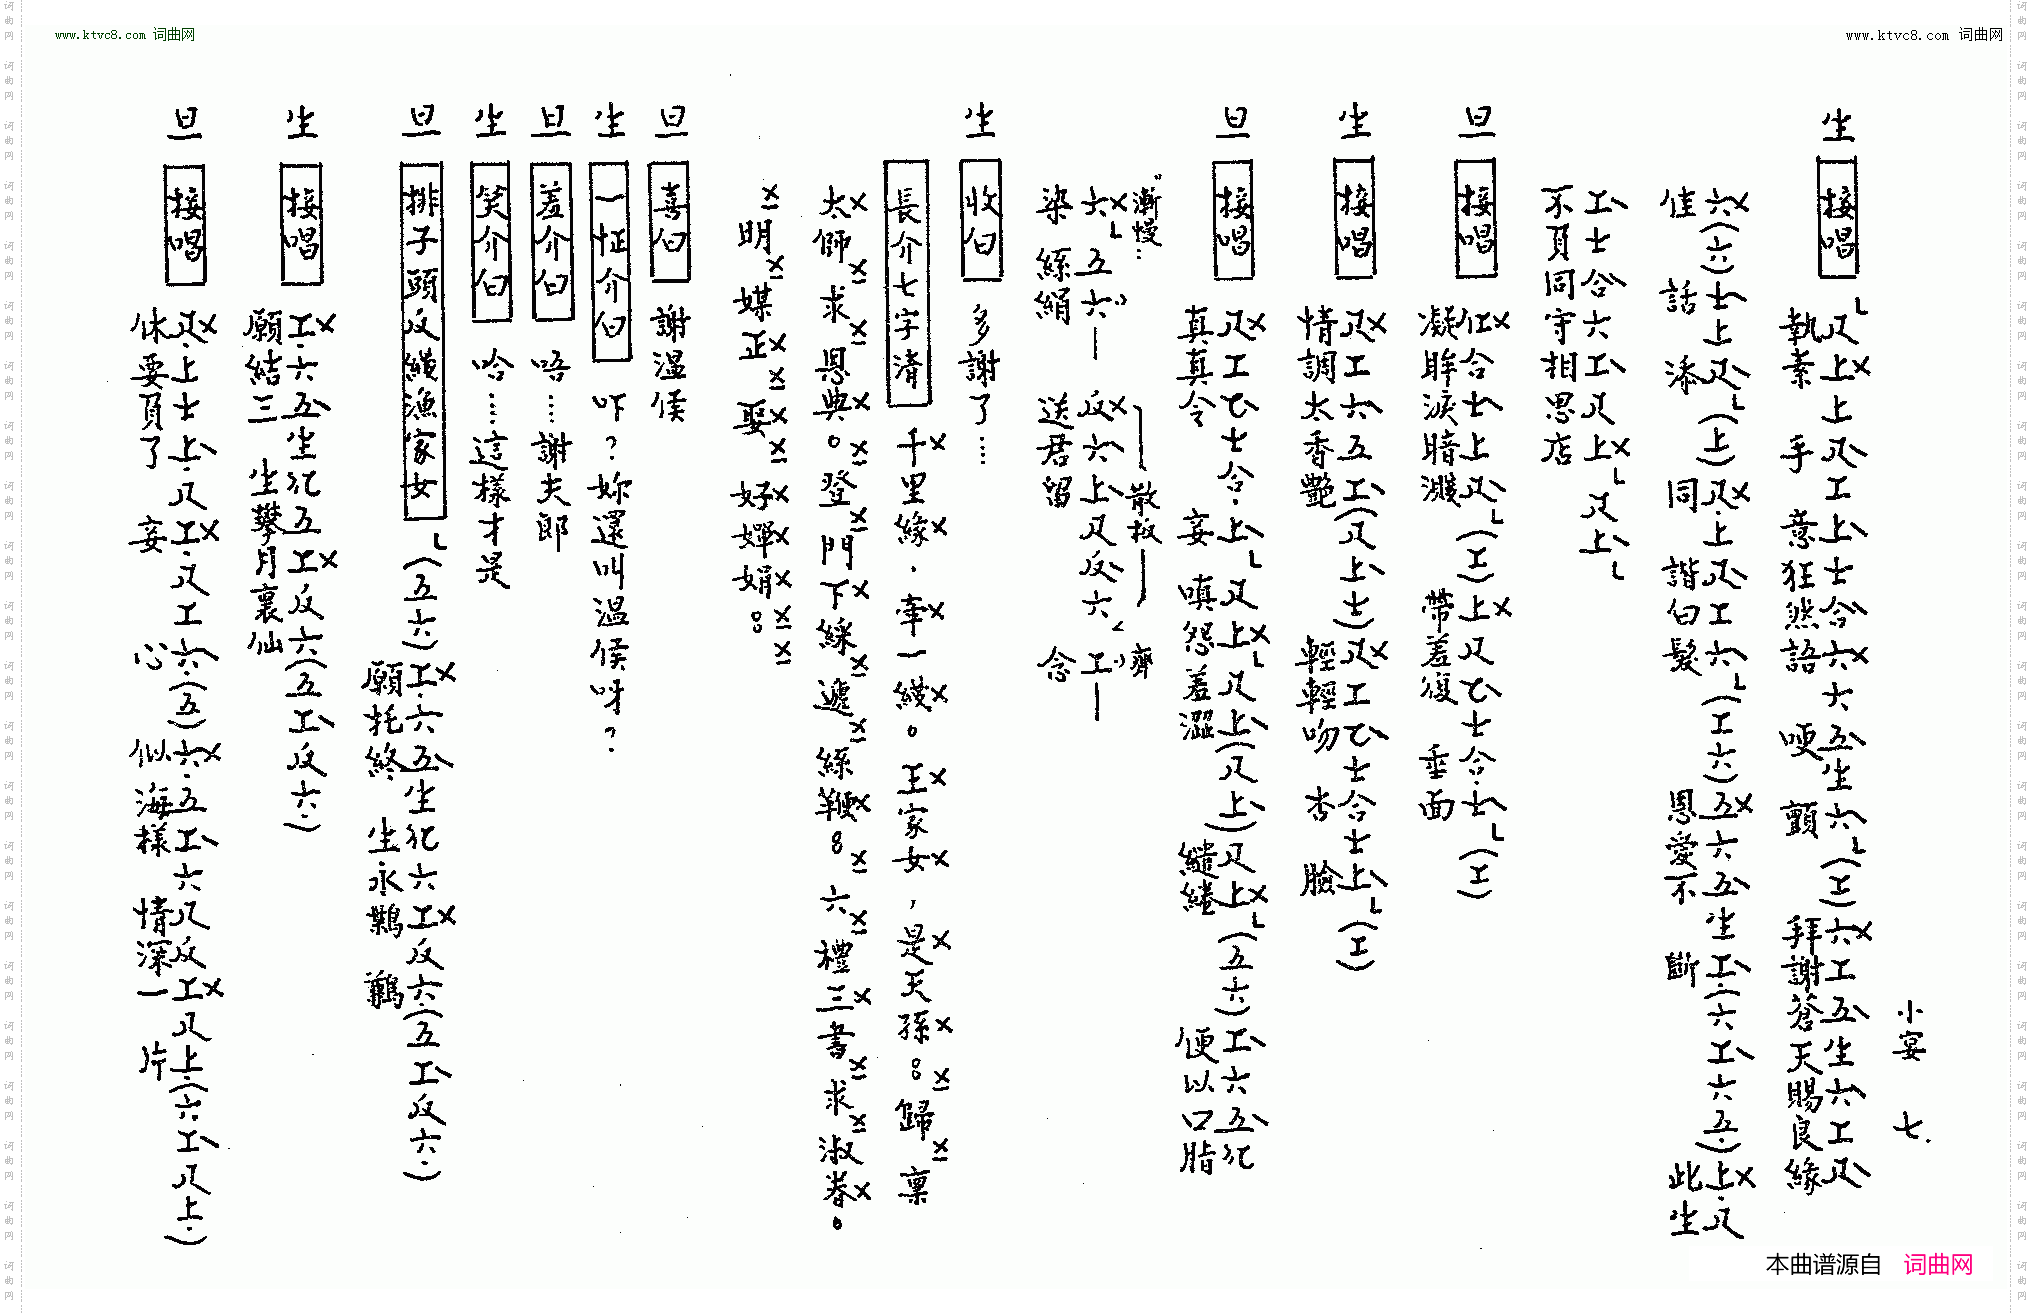 www.ktvc8.com 词曲网
www.ktvc8.com 词曲网
小宴 七.
生 接唱
尺上上尺工上士合六六五生六(工)六工五生六工尺
執素手 意狂然語 哽顫 拜謝蒼天賜良緣
六(六)士上尺(上)尺上尺工六(工六)五六五生工(六工六五)上尺
佳話添 同諧白髮 恩愛不斷 此生
工士合六工尺上尺上
不負同守相思店
旦 接唱
仩合士上尺(工)上尺乙士合士(工)
凝眸淚暗濺 帶羞復垂面
生 接唱
尺工六五工(尺上士)尺工乙士合士上(工)
情調太香艷 輕輕吻杏臉
旦 接唱
尺工乙士合上尺上尺上(尺上)尺上(五六)工六五化
真真令妾嗔怨羞澀繾綣 便以口脂
"漸慢… 散板 齊
六五六 反六上尺反六 工
染絲絹 送君留念
生 收白 多謝了…
長介七字清 千里緣．牽一綫。王家女，是天孫：歸稟
太師求恩典。登門下綵遞絲鞭：六禮三書求淑眷。
明媒正娶好嬋娟：
旦 喜白 謝溫侯
生 一怔介白 吓？妳還叫溫侯呀？
旦 羞介白 唔……謝夫郎
生 笑介白 哈……這樣才是
旦 排子頭反綫漁家女
(五六)工六五生化六工反六(五工反六)
願托終生永鶼鶼
生 接唱
工六五生化五工反六(五工反六)
願結三生攀月裏仙
旦 接唱
尺上士上尺工尺工六(五)六五工六尺反工尺上(六工尺上)
休要負了妾心 似海樣情深一片
本曲谱源自 词曲网